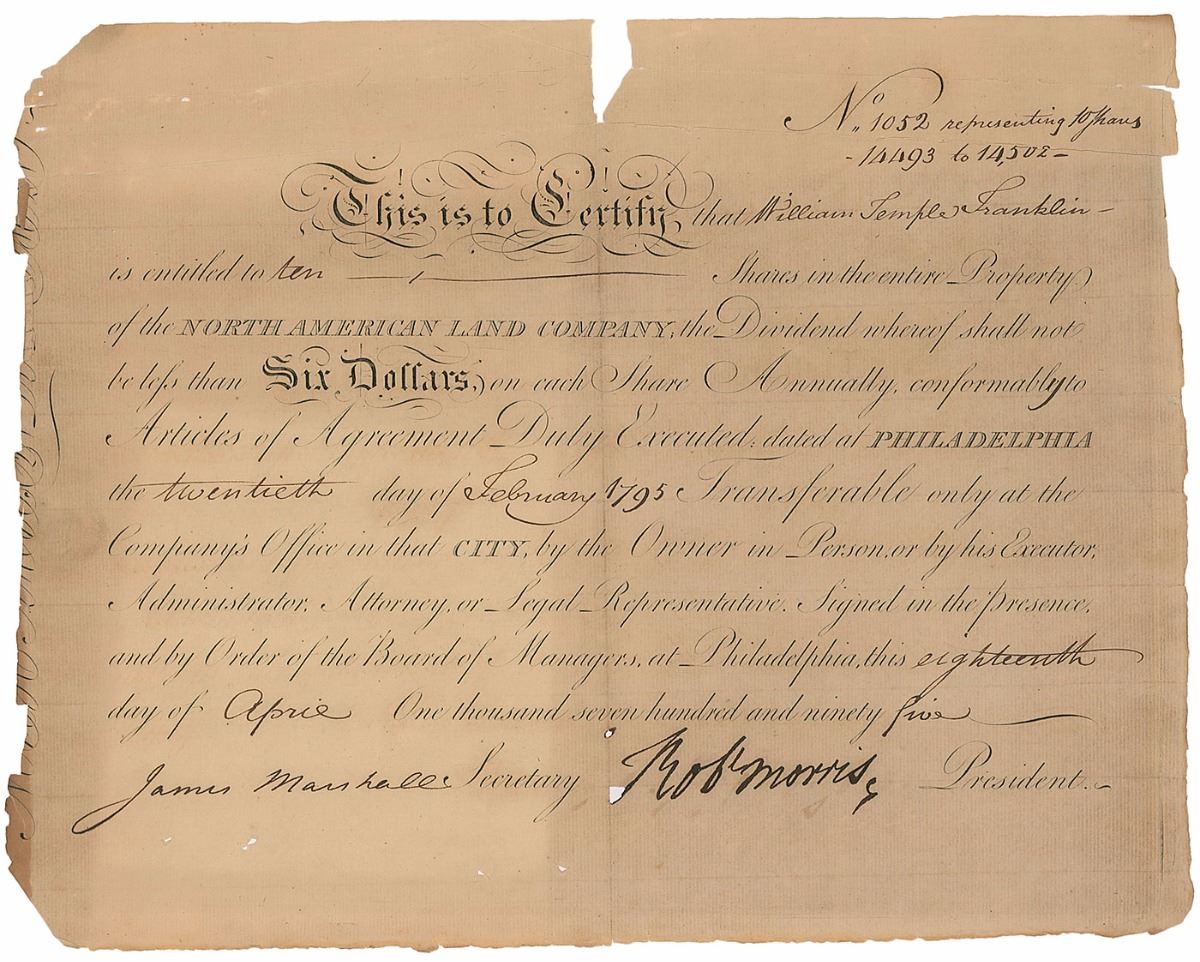 No. 1052 representing 10 Shares
- 14493 to 14,502 -
This is to Certify, that William Temple Franklin -
is entitled to ten Shares in the entire Property
of the NORTH AMERICAN LAND COMPANY, the Dividend whereof shall not
be less than Six Dollars, on each Share Annually, conformably to
Articles of Agreement Duly Executed; dated at PHILADELPHIA
the twentieth day of February 1795 Transferable only at the
Company's Office in that CITY, by the Owner in Person, or by his Executor,
Administrator, Attorney, or Legal Representative. Signed in the presence,
and by Order of the Board of Managers, at Philadelphia, this eighteenth
day of April One thousand seven hundred and ninety five
James Marshall Secretary Robt Morris President.